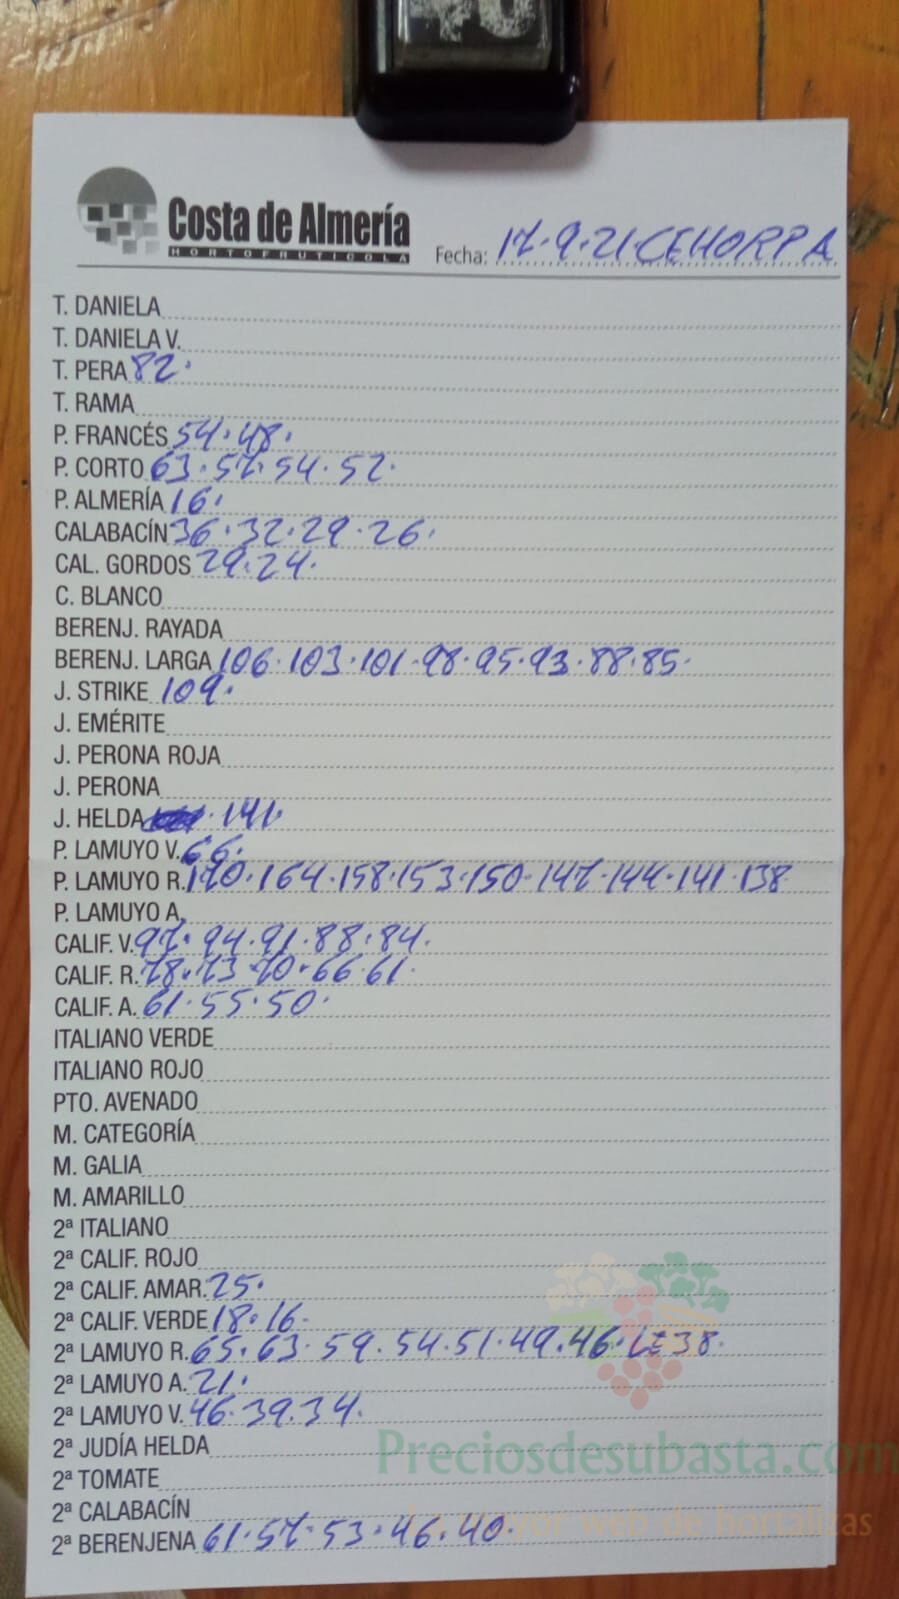 Costa de Almería
HORTOFRUTICOLA
Fecha: 17.9.21 CEHORPA
T. DANIELA
T. DANIELA V.
T. PERA 82.
T. RAMA
P. FRANCÉS 54.48.
P. CORTO 63.57.54.52.
P. ALMERÍA 16.
CALABACÍN 36.32.29.26.
CAL. GORDOS 29.24.
C. BLANCO
BERENJ. RAYADA
BERENJ. LARGA 106.103.101.98.95.93.88.85.
J. STRIKE 109.
J. EMÉRITE
J. PERONA ROJA
J. PERONA
J. HELDA . 141.
P. LAMUYO V. 66.
P. LAMUYO R. 170.164.158.153.150.147.144.141.138
P. LAMUYO A.
CALIF. V. 97.94.91.88.84.
CALIF. R. 78.73.70.66.61.
CALIF. A. 61.55.50.
ITALIANO VERDE
ITALIANO ROJO
PTO. AVENADO
M. CATEGORÍA
M. GALIA
M. AMARILLO
2ª ITALIANO
2ª CALIF. ROJO
2ª CALIF. AMAR. 25.
2ª CALIF. VERDE 18.16.
2ª LAMUYO R. 65.63.59.54.51.49.46. 38.
2ª LAMUYO A. 21.
2ª LAMUYO V. 46.39.34.
2ª JUDÍA HELDA
Preciosdesubasta.com
2ª TOMATE
2ª CALABACÍN
La mayor web de hortalizas
2ª BERENJENA 61.57.53.46.40.